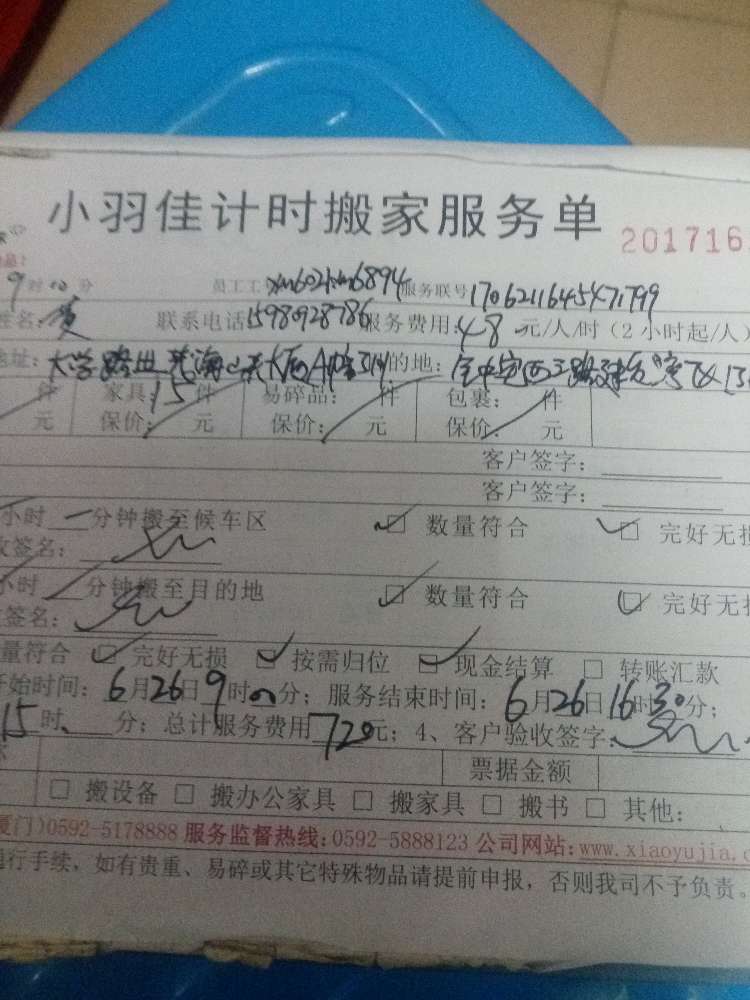 小羽佳计时搬家服务单
201716
9时00分 员工工号 服务联号:1706211645471799
姓名:黄 联系电话15980928786服务费用:48元/人/时(2小时起/人)
地址:大学路 的地:
件 家具:15件 易碎品: 件 包裹: 件
元 保价: 元 保价: 元 保价: 元
客户签字:
客户签字:
小时 分钟搬至候车区 ☑ 数量符合 ☑ 完好无损
收签名:
小时 分钟搬至目的地 ☑ 数量符合 ☑ 完好无损
签名:
量符合 ☑ 完好无损 ☑ 按需归位 ☑ 现金结算 □ 转账汇款
开始时间:6月26日9时00分;服务结束时间:6月26日16时30分;
15时 分;总计服务费用720元;4、客户验收签字:
票据金额
□ 搬设备 □ 搬办公家具 □ 搬家具 □ 搬书 □ 其他:
厦门)0592-5178888 服务监督热线:0592-5888123 公司网站:www.xiaoyujia.c
行手续,如有贵重、易碎或其它特殊物品请提前申报,否则我司不予负责。